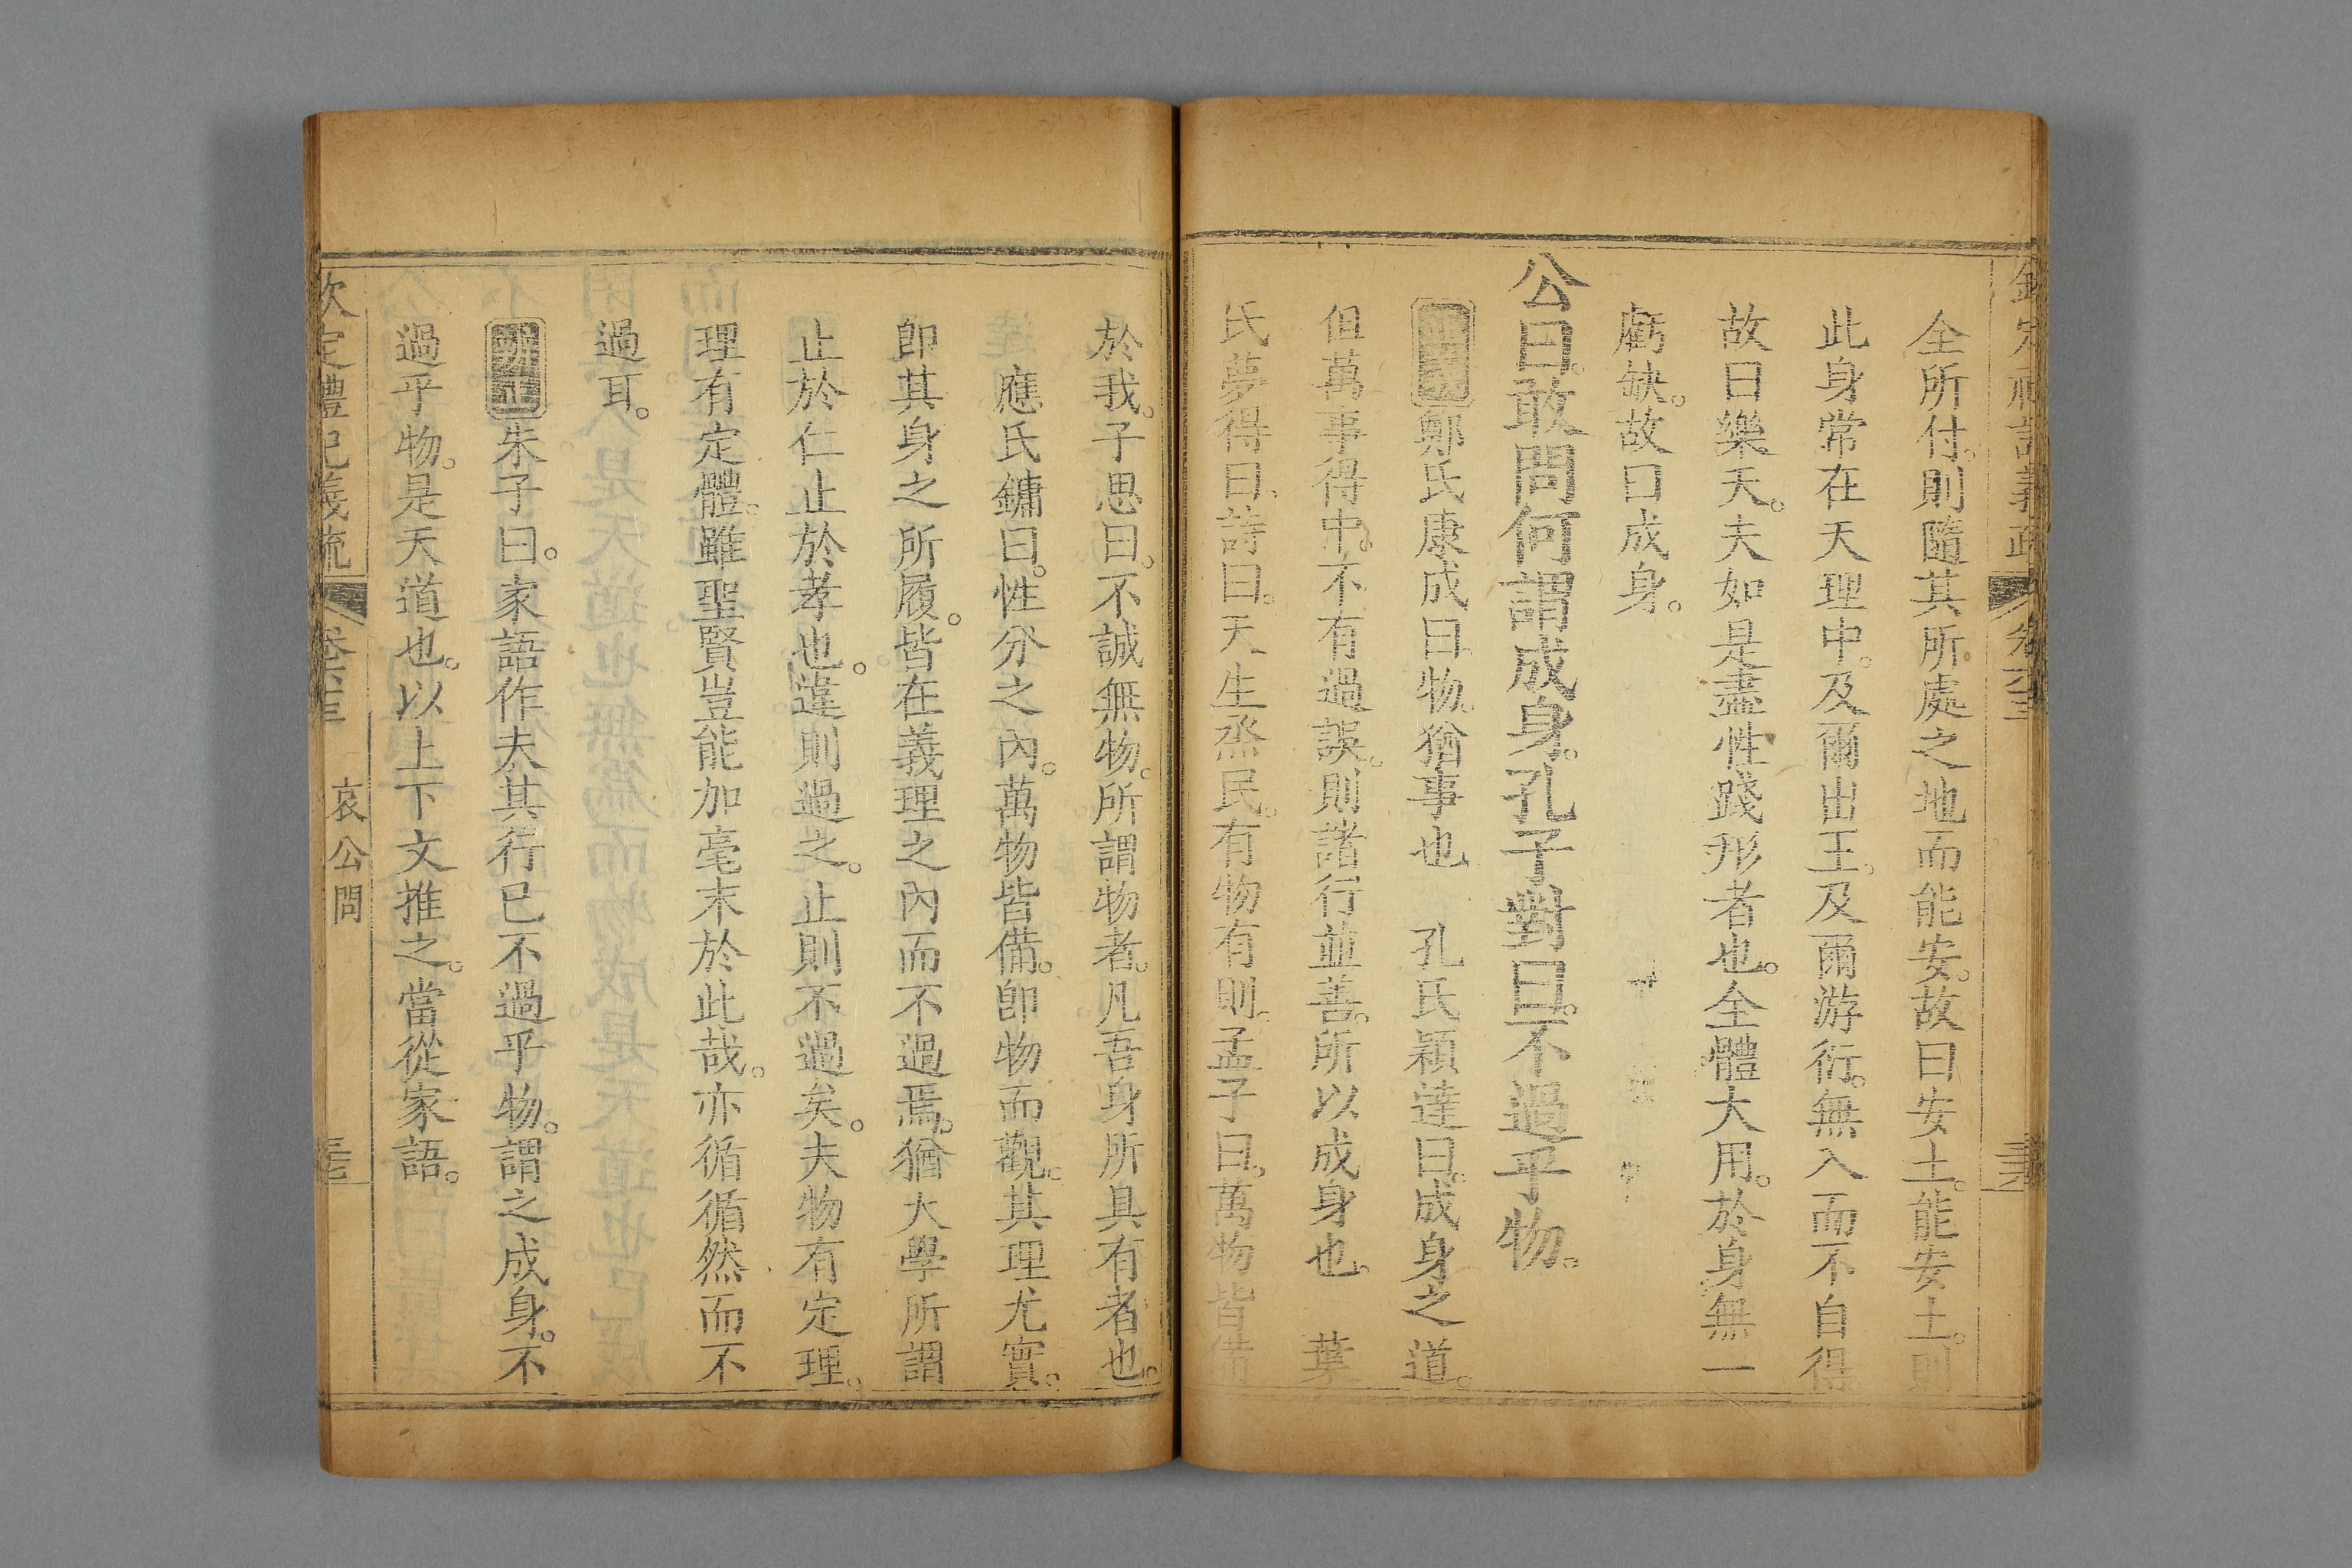 全所付。則隨其所處之地而能安。故曰安土。能安土。則
此身常在天理中。及爾出王。及爾游衍。無入而不自得
故曰樂天。夫如是盡性踐形者也。全體大用。於身無一
虧缺。故曰成身。
公曰。敢問何謂成身。孔子對曰。不過乎物。
鄭氏康成曰。物。猶事也　孔氏穎達曰。成身之道。
但萬事得中。不有過誤。則諸行並善。所以成身也。　葉
氏夢得曰。詩曰。天生烝民。有物有則。孟子曰。萬物皆備
於我。子思曰。不誠無物。所謂物者。凡吾身所具有者也。
應氏鏞曰。性分之內。萬物皆備。卽物而觀。其理尤實。
卽其身之所履。皆在義理之內而不過焉。猶大學所謂
止於仁止於孝也。違則過之。止則不過矣。夫物有定理。
理有定體。雖聖賢豈能加毫末於此哉。亦循循然而不
過耳。
朱子曰。家語作夫其行已不過乎物。謂之成身。不
過乎物。是天道也。以上下文推之。當從家語。
欽定禮記義疏　卷六十三　哀公問